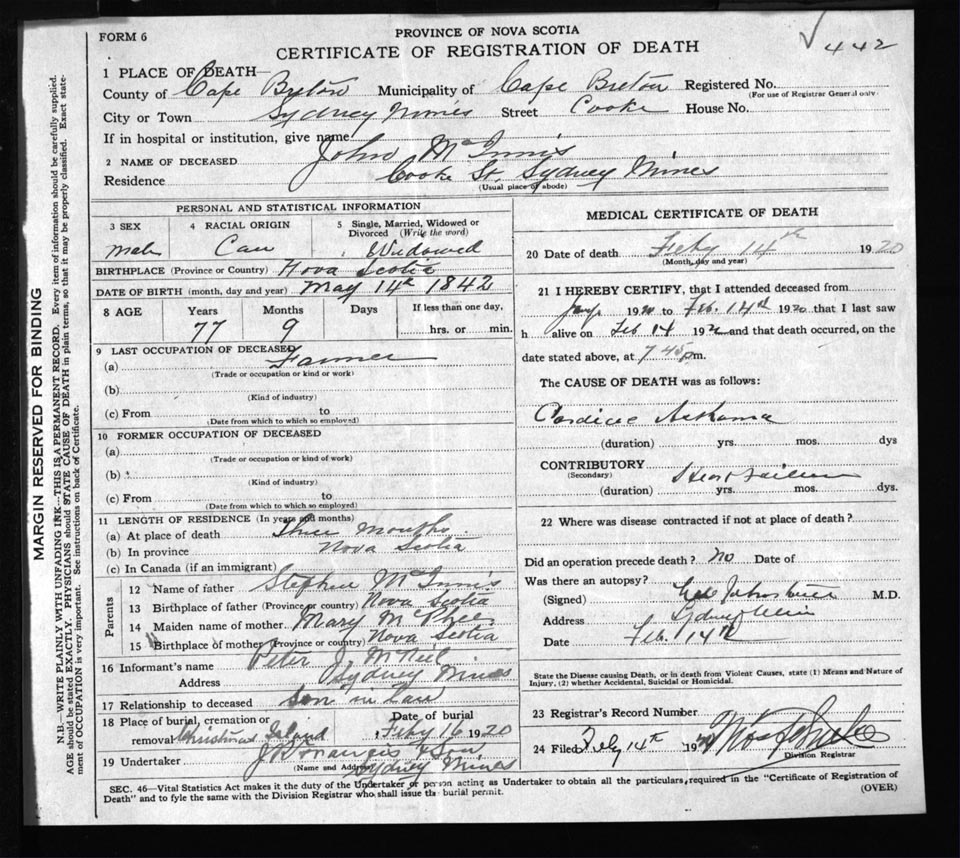 FORM 6
PROVINCE OF NOVA SCOTIA
√ 442
CERTIFICATE OF REGISTRATION OF DEATH
1 PLACE OF DEATH—
County of Cape Breton Municipality of Cape Breton Registered No.
(For use of Registrar General only
City or Town Sydney Mines Street Cooke House No.
If in hospital or institution, give name
2 NAME OF DECEASED John McInnis
Residence Cooke St. Sydney Mines
(Usual place of abode)
PERSONAL AND STATISTICAL INFORMATION
3 SEX 4 RACIAL ORIGIN 5 Single, Married, Widowed or
Divorced (Write the word)
male Can Widowed
BIRTHPLACE (Province or Country) Nova Scotia
DATE OF BIRTH (month, day and year) May 14th 1842
8 AGE Years Months Days If less than one day,
77 9 hrs. or min.
9 LAST OCCUPATION OF DECEASED
(a) Farmer
(Trade or occupation or kind or work)
(b)
(Kind of industry)
(c) From to
(Date from which to which so employed)
10 FORMER OCCUPATION OF DECEASED
(a)
(Trade or occupation or kind of work)
(b)
(Kind of industry)
(c) From to
(Date from which to which so employed)
11 LENGTH OF RESIDENCE (In years and months)
(a) At place of death Three months
(b) In province Nova Scotia
(c) In Canada (if an immigrant)
Parents
12 Name of father Stephen McInnis
13 Birthplace of father (Province or country) Nova Scotia
14 Maiden name of mother Mary McPhee
15 Birthplace of mother (Province or country) Nova Scotia
16 Informant's name Peter J. McNeil
Address Sydney Mines
17 Relationship to deceased Son in Law
18 Place of burial, cremation or Date of burial
removal Christmas Island Feby 16 1920
19 Undertaker J. Francis & Son
(Name and Address) Sydney Mines
MEDICAL CERTIFICATE OF DEATH
20 Date of death Feby 14th 1920
(Month, day and year)
21 I HEREBY CERTIFY, that I attended deceased from
1920 to Feb. 14th 1920 that I last saw
h alive on Feb 14 192 and that death occurred, on the
date stated above, at 7 45 pm.
The CAUSE OF DEATH was as follows:
(duration) yrs. mos. dys
CONTRIBUTORY Heart failure
(Secondary)
(duration) yrs. mos. dys.
22 Where was disease contracted if not at place of death?
Did an operation precede death? No Date of
Was there an autopsy?
(Signed) M.D.
Address Sydney Mines
Date Feb. 14th
State the Disease causing Death, or in death from Violent Causes, state (1) Means and Nature of
Injury, (2) whether Accidental, Suicidal or Homicidal.
23 Registrar's Record Number
24 Filed Feby 14th 1920
Division Registrar
SEC. 46—Vital Statistics Act makes it the duty of the Undertaker or person acting as Undertaker to obtain all the particulars required in the "Certificate of Registration of
Death" and to fyle the same with the Division Registrar who shall issue the burial permit.
(OVER)
MARGIN RESERVED FOR BINDING
N.B.—WRITE PLAINLY WITH UNFADING INK—THIS IS A PERMANENT RECORD. Every item of information should be carefully supplied.
AGE should be stated EXACTLY. PHYSICIANS should STATE CAUSE OF DEATH in plain terms, so that it may be properly classified. Exact state-
ment of OCCUPATION is very important. See instructions on back of Certificate.